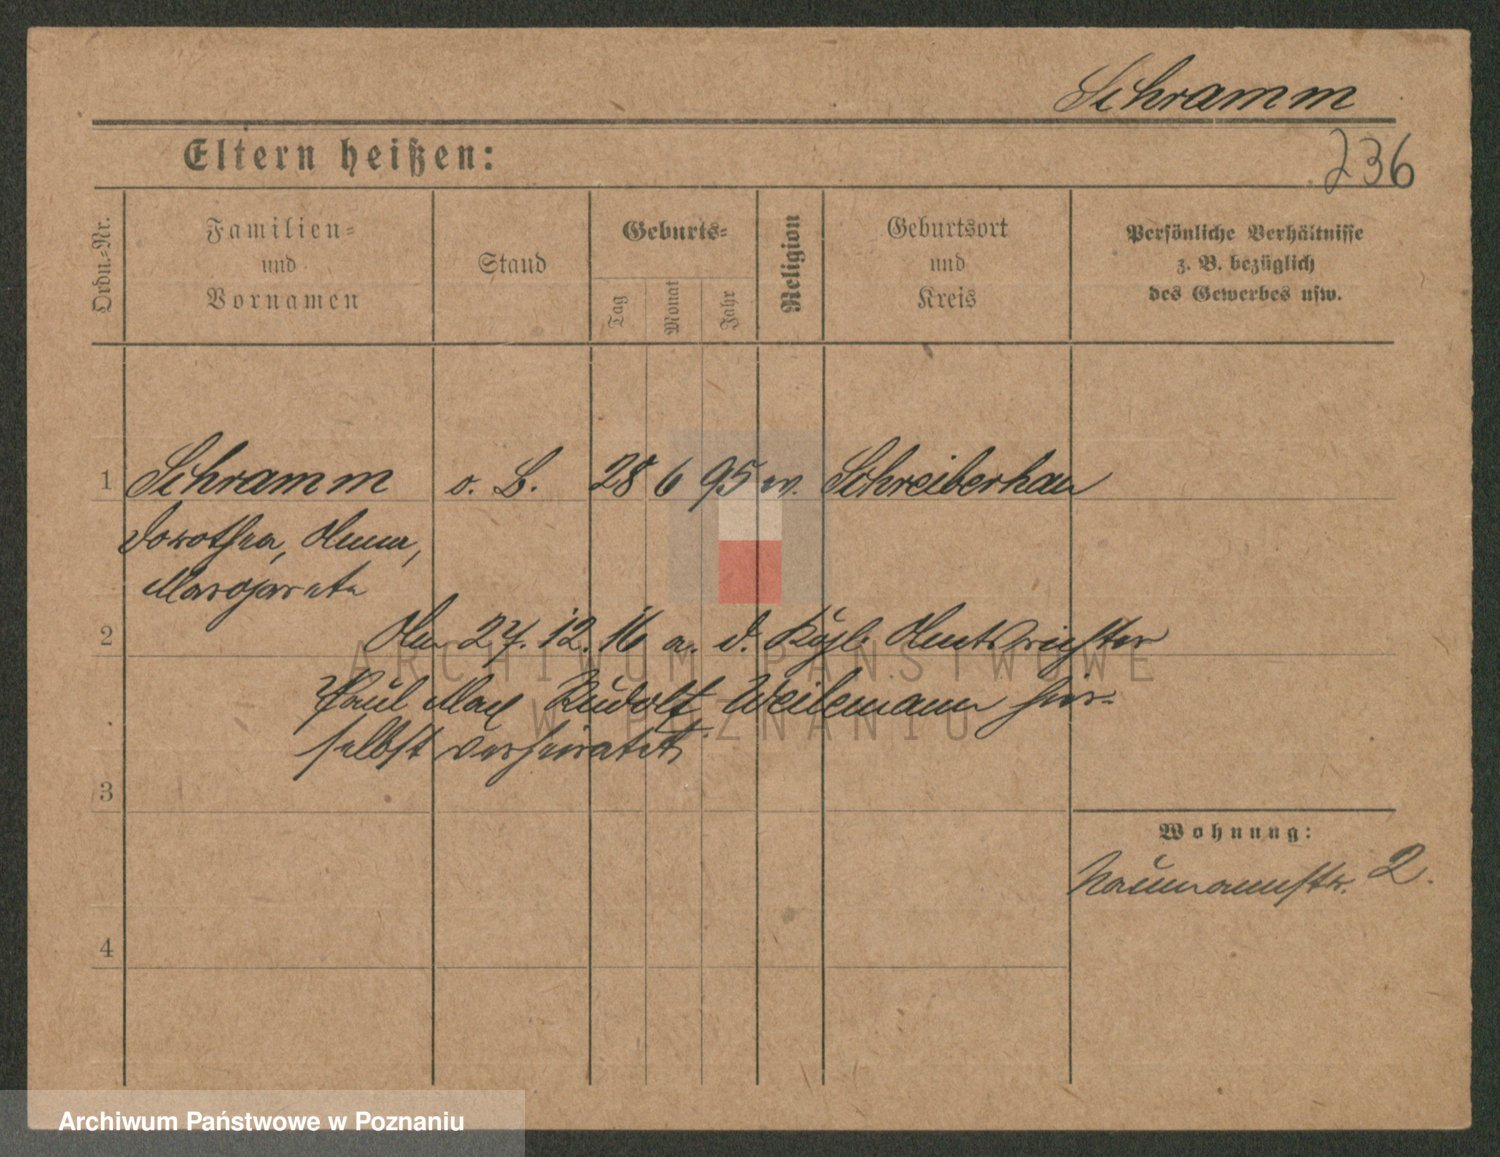 Schramm
236
Eltern heißen:
Ordn.-Nr.
Familien-
und
Vornamen
Stand
Geburts-
Tag
Monat
Jahr
Religion
Geburtsort
und
Kreis
Persönliche Verhältnisse
z. B. bezüglich
des Gewerbes usw.
1 Schramm o. B. 28 6 95 ev. Schreiberhau
Dorothea, Anna,
Margarete
2
Am 27. 12. 16 a. d. Kögl. Amtsrichter
Paul Max Rudolf Weilemann hier-
selbst verheiratet.
3
Wohnung:
Naumannstr. 2.
4
ARCHIWUM PAŃSTWOWE
W POZNANIU
Archiwum Państwowe w Poznaniu